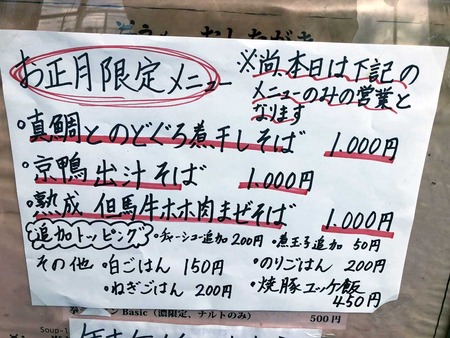 お正月限定メニュー
※尚、本日は下記の
メニューのみの営業と
なります
・真鯛とのどぐろ煮干しそば 1,000円
・京鴨出汁そば 1,000円
・熟成 但馬牛ホホ肉まぜそば 1,000円
追加トッピング ・チャーシュー追加 200円 ・煮玉子追加 50円
その他 ・白ごはん 150円 ・のりごはん 200円
・ねぎごはん 200円 ・焼豚ユッケ飯
450円
Basic（濃限定、ナルトのみ） 500円
Soup-